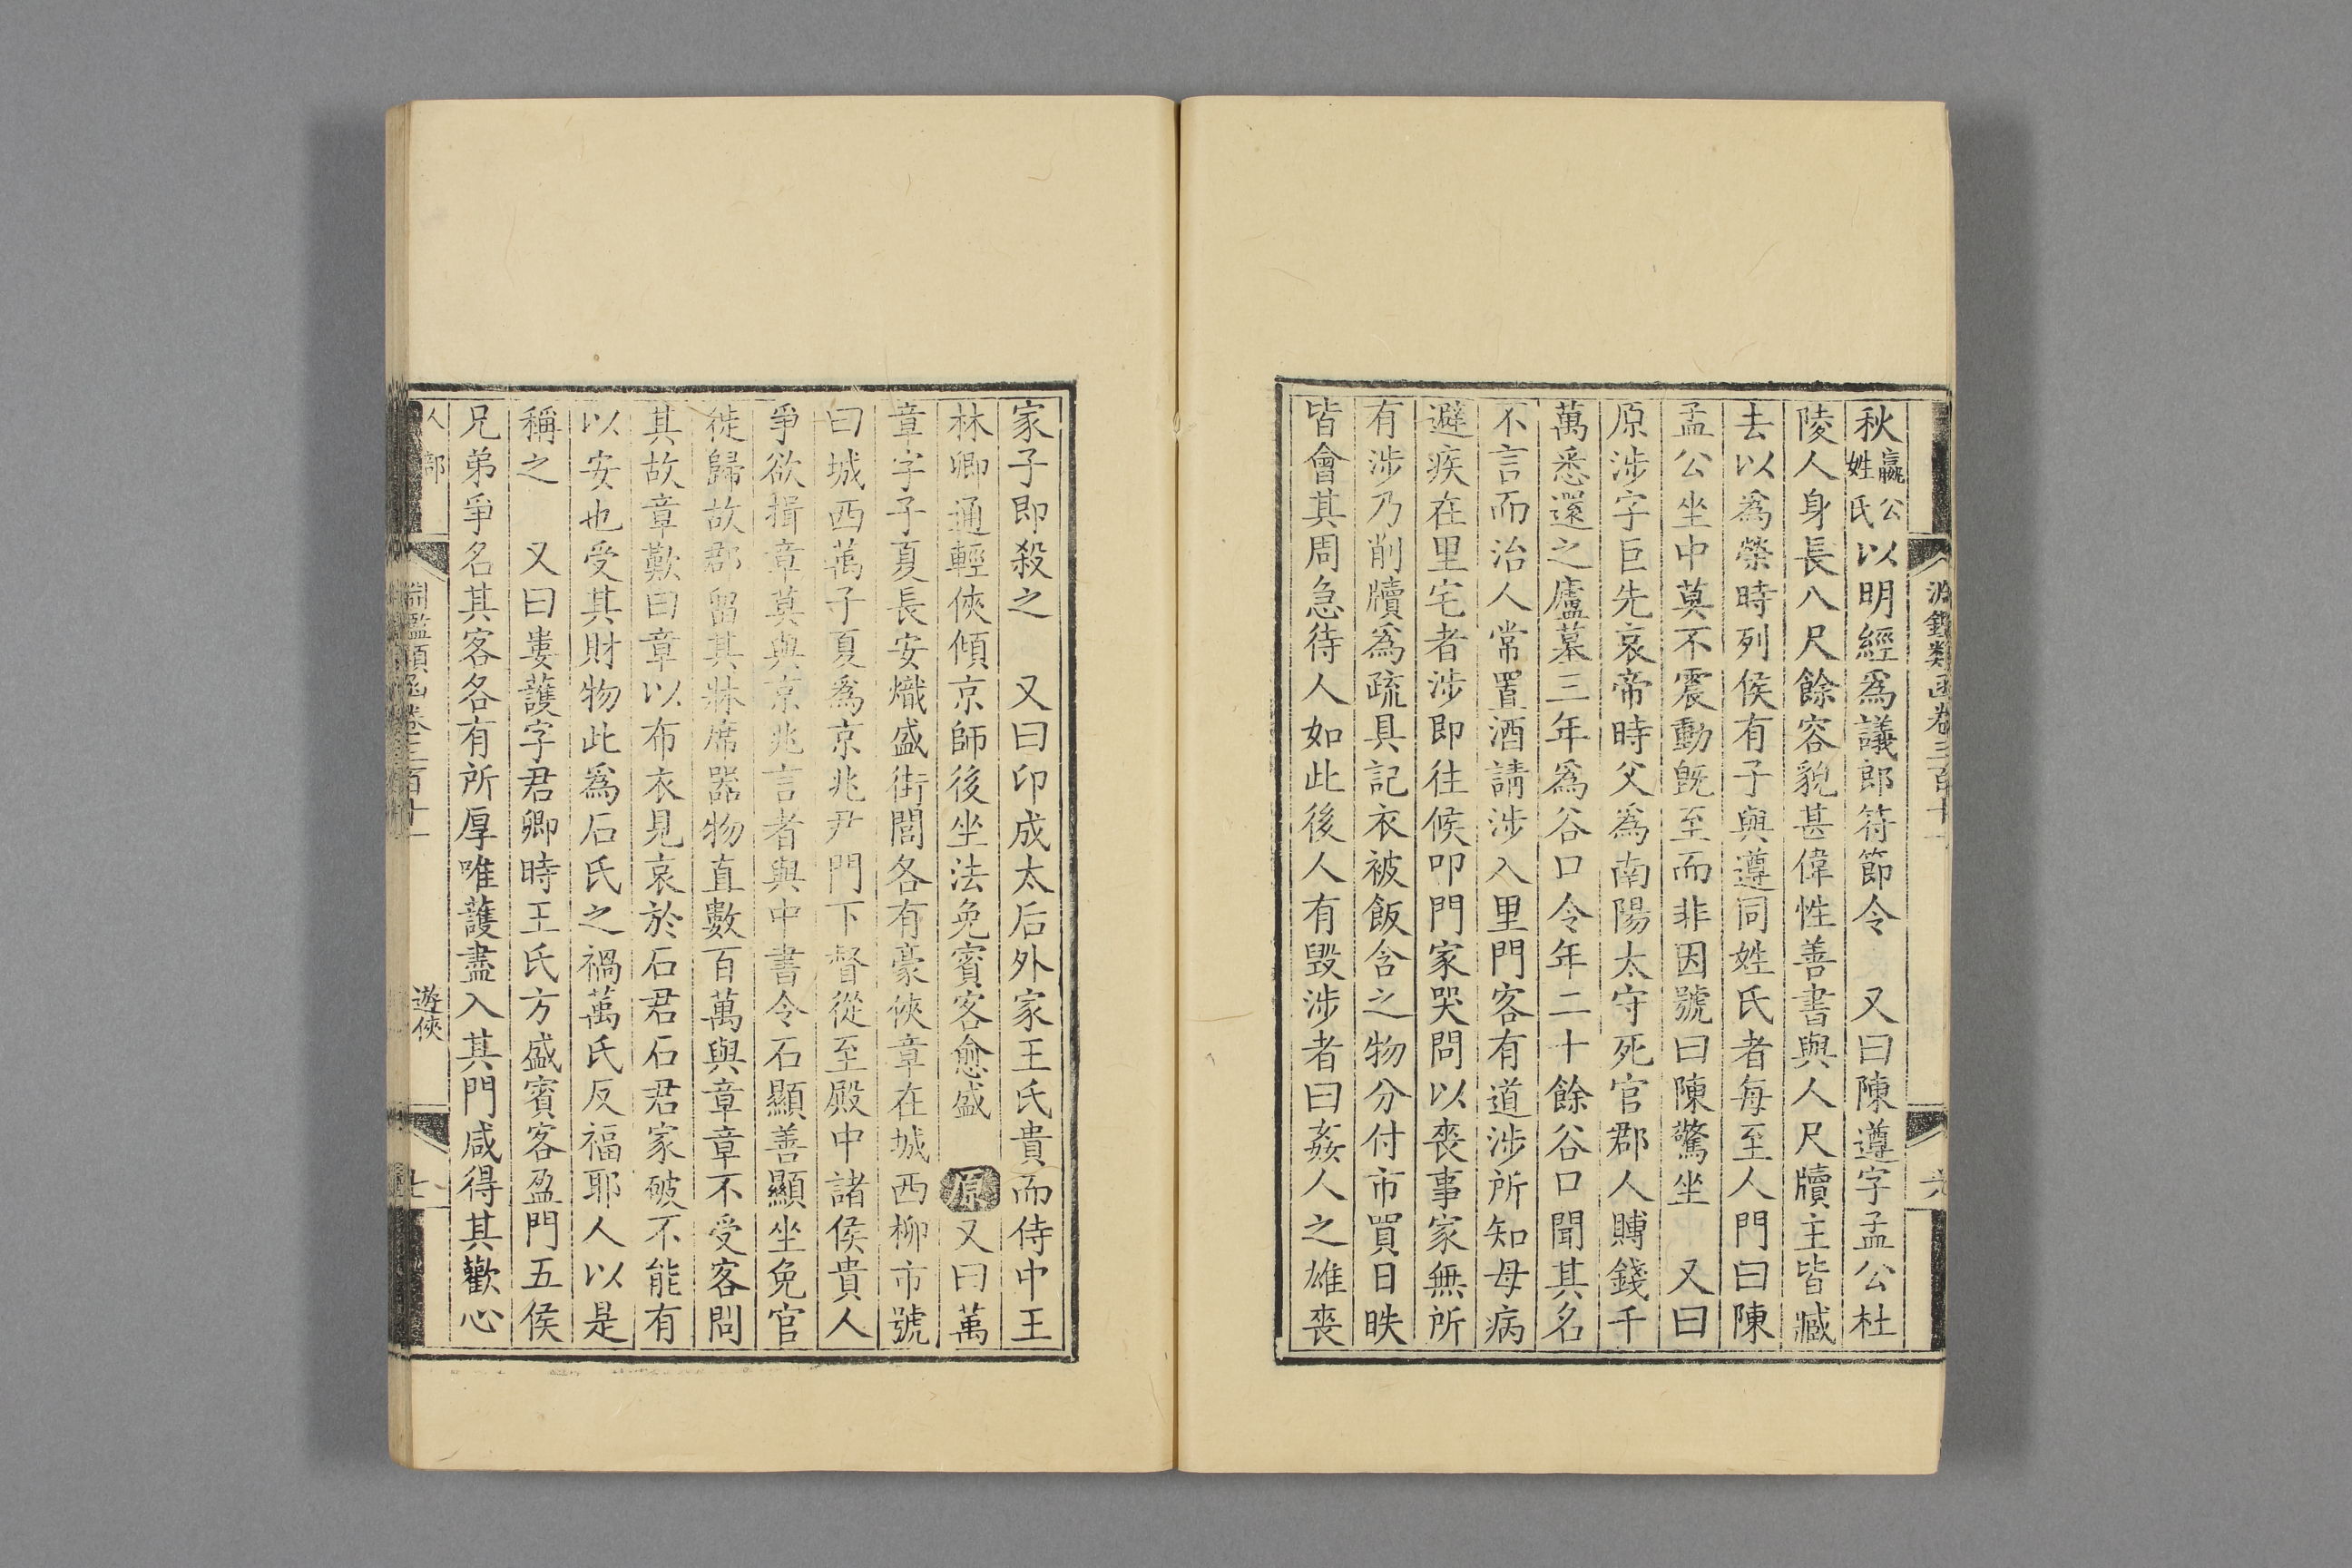 淵鑑類函卷三百十一
秋嬴公姓氏以明經爲議郎符節令　又曰陳遵字孟公杜
陵人身長八尺餘容貌甚偉性善書與人尺牘主皆臧
去以爲榮時列侯有子與遵同姓氏者每至人門曰陳
孟公坐中莫不震動旣至而非因號曰陳驚坐　又曰
原涉字巨先哀帝時父爲南陽太守死官郡人賻錢千
萬悉還之廬墓三年爲谷口令年二十餘谷口聞其名
不言而治人常置酒請涉入里門客有道涉所知母病
避疾在里宅者涉即往候叩門家哭問以喪事家無所
有涉乃削牘爲疏具記衣被飯含之物分付市買日昳
皆會其周急待人如此後人有毀涉者曰姦人之雄喪
家子即殺之　又曰印成太后外家王氏貴而侍中王
林卿通輕俠傾京師後坐法免賓客愈盛　原又曰萬
章字子夏長安熾盛街閭各有豪俠章在城西柳市號
曰城西萬子夏爲京兆尹門下督從至殿中諸侯貴人
爭欲揖章莫與京兆言者與中書令石顯善顯坐免官
徙歸故郡留其牀席器物直數百萬與章章不受客問
其故章歎曰章以布衣見哀於石君石君家破不能有
以安也受其財物此爲石氏之禍萬氏反福耶人以是
稱之　又曰婁護字君卿時王氏方盛賓客盈門五侯
兄弟爭名其客各有所厚唯護盡入其門咸得其歡心
人部
遊俠